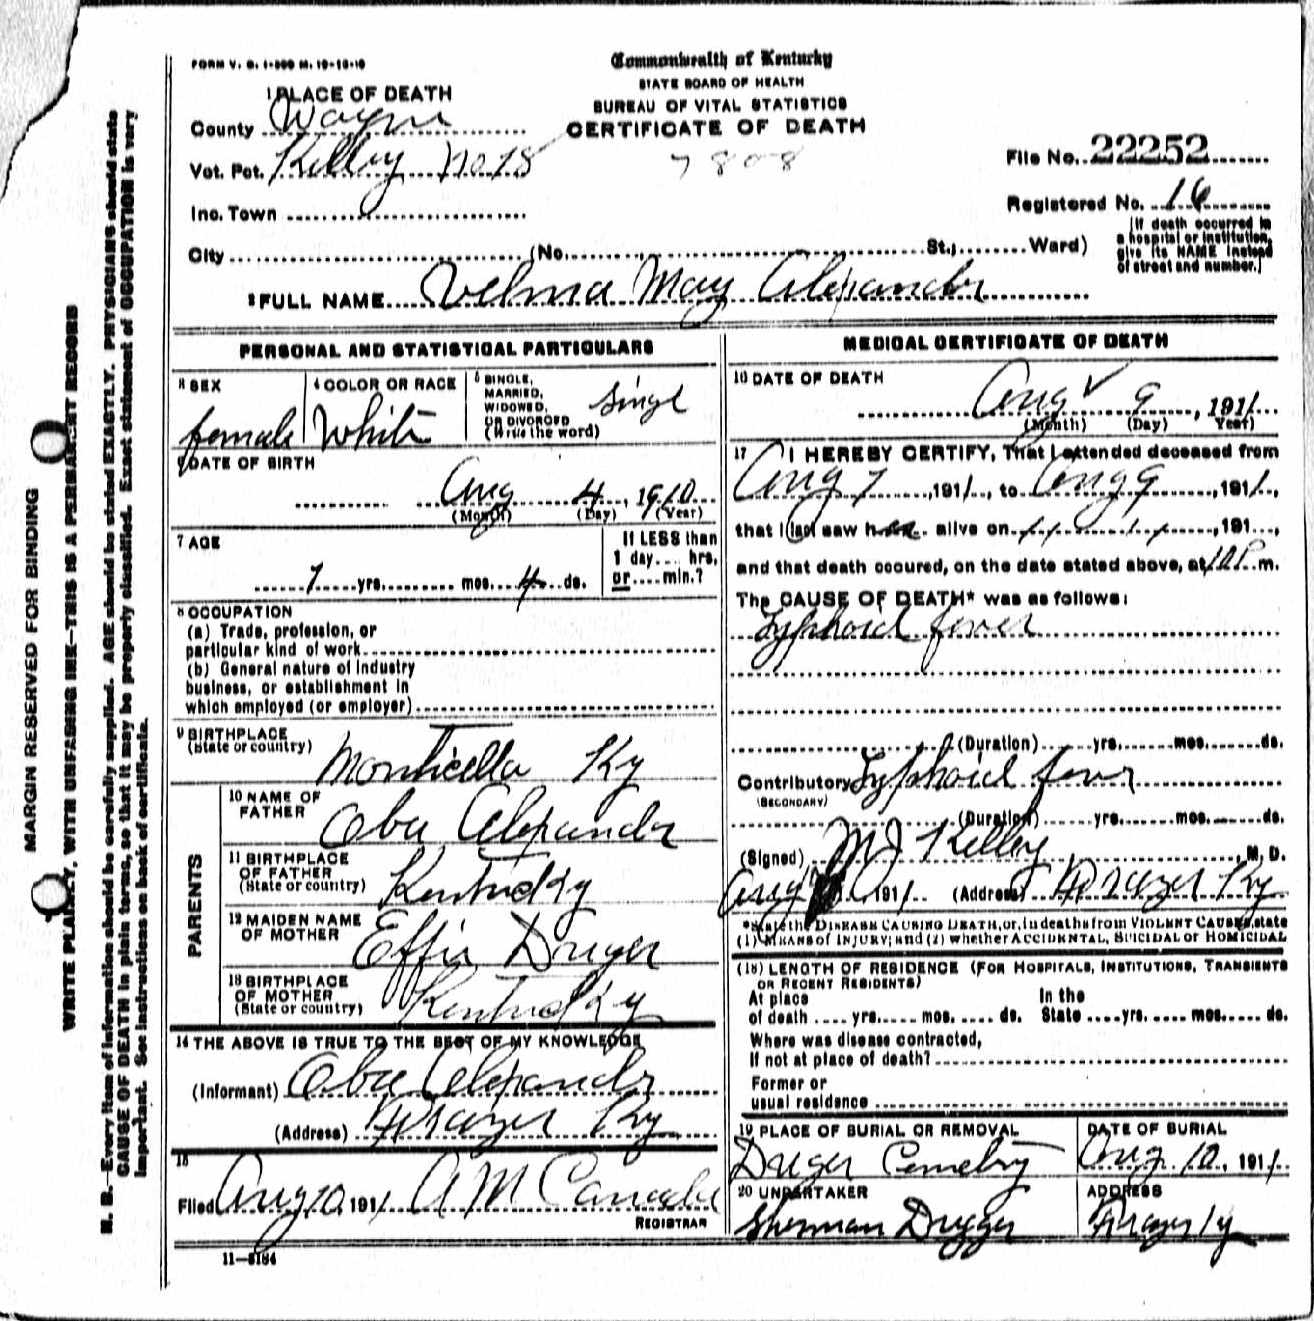 FORM V. S. 1-300 M. 10-13-10
Commonwealth of Kentucky
STATE BOARD OF HEALTH
BUREAU OF VITAL STATISTICS
CERTIFICATE OF DEATH
7808
1 PLACE OF DEATH
County Wayne
Vot. Pct. Kelley No 18
Inc. Town
City (No. St.; Ward)
File No. 22252
Registered No. 16
(If death occurred in
a hospital or institution,
give its NAME instead
of street and number.)
2 FULL NAME Velma May Alexander
PERSONAL AND STATISTICAL PARTICULARS
3 SEX
female
4 COLOR OR RACE
White
5 SINGLE,
MARRIED,
WIDOWED,
OR DIVORCED
(Write the word)
Singl
6 DATE OF BIRTH
Aug 4, 1910
(Month) (Day) (Year)
7 AGE
1 yrs. mos. 4 ds.
If LESS than
1 day.... hrs.
or.... min.?
8 OCCUPATION
(a) Trade, profession, or
particular kind of work
(b) General nature of industry
business, or establishment in
which employed (or employer)
9 BIRTHPLACE
(State or country)
Monticello Ky
PARENTS
10 NAME OF
FATHER
Abe Alexander
11 BIRTHPLACE
OF FATHER
(State or country)
Kentucky
12 MAIDEN NAME
OF MOTHER
Effie Druger
13 BIRTHPLACE
OF MOTHER
(State or country)
Kentucky
14 THE ABOVE IS TRUE TO THE BEST OF MY KNOWLEDGE
(Informant) Abe Alexander
(Address) Frazer Ky
15
Filed Aug 10, 1911 A M
REGISTRAR
11—3184
MEDICAL CERTIFICATE OF DEATH
16 DATE OF DEATH
Aug 9, 1911
(Month) (Day) Year)
17 I HEREBY CERTIFY, That I attended deceased from
Aug 7, 1911, to Aug 9, 1911,
that I last saw her alive on 11 11, 191...,
and that death occured, on the date stated above, at 10 P. m.
The CAUSE OF DEATH* was as follows:
Typhoid fever
(Duration) yrs. mos. ds.
Contributory Typhoid fever
(SECONDARY)
(Duration) yrs. mos. ds.
(Signed) M J Kelley, M. D.
Aug 10, 1911 (Address) Frazer Ky
*State the DISEASE CAUSING DEATH, or, in deaths from VIOLENT CAUSES, state
(1) MEANS of INJURY; and (2) whether ACCIDENTAL, SUICIDAL or HOMICIDAL
(18) LENGTH OF RESIDENCE (FOR HOSPITALS, INSTITUTIONS, TRANSIENTS
OR RECENT RESIDENTS)
At place In the
of death .... yrs. .... mos. .... ds. State .... yrs. .... mos. .... ds.
Where was disease contracted,
if not at place of death?
Former or
usual residence
19 PLACE OF BURIAL OR REMOVAL
Druger Cemetery
DATE OF BURIAL
Aug 10, 1911
20 UNDERTAKER
Sherman Drugger
ADDRESS
Frazer Ky
MARGIN RESERVED FOR BINDING
WRITE PLAINLY, WITH UNFADING INK—THIS IS A PERMANENT RECORD
N. B.—Every item of information should be carefully supplied. AGE should be stated EXACTLY. PHYSICIANS should state
CAUSE OF DEATH in plain terms, so that it may be properly classified. Exact statement of OCCUPATION is very
important. See instructions on back of certificate.